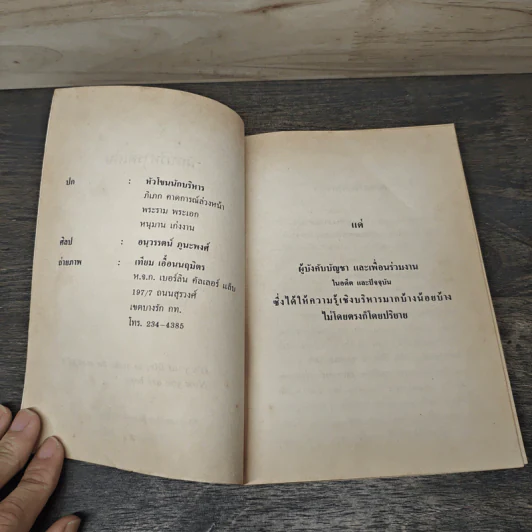 ปก : หัวโขนนักบริหาร
ภิเภก คาดการณ์ล่วงหน้า
พระราม พระเอก
หนุมาน เก่งงาน
ศิลป : อนุวรรตน์ ภูนะพงศ์
ถ่ายภาพ : เทียม เอื้อนนฤมิตร
ห.จ.ก. เบอร์ลิน คัลเลอร์ แล็บ
197/7 ถนนสุรวงศ์
เขตบางรัก กท.
โทร. 234-4385
แด่
ผู้บังคับบัญชา และเพื่อนร่วมงาน
ในอดีต และปัจจุบัน
ซึ่งได้ให้ความรู้เชิงบริหารมากบ้างน้อยบ้าง
ไม่โดยตรงก็โดยปริยาย